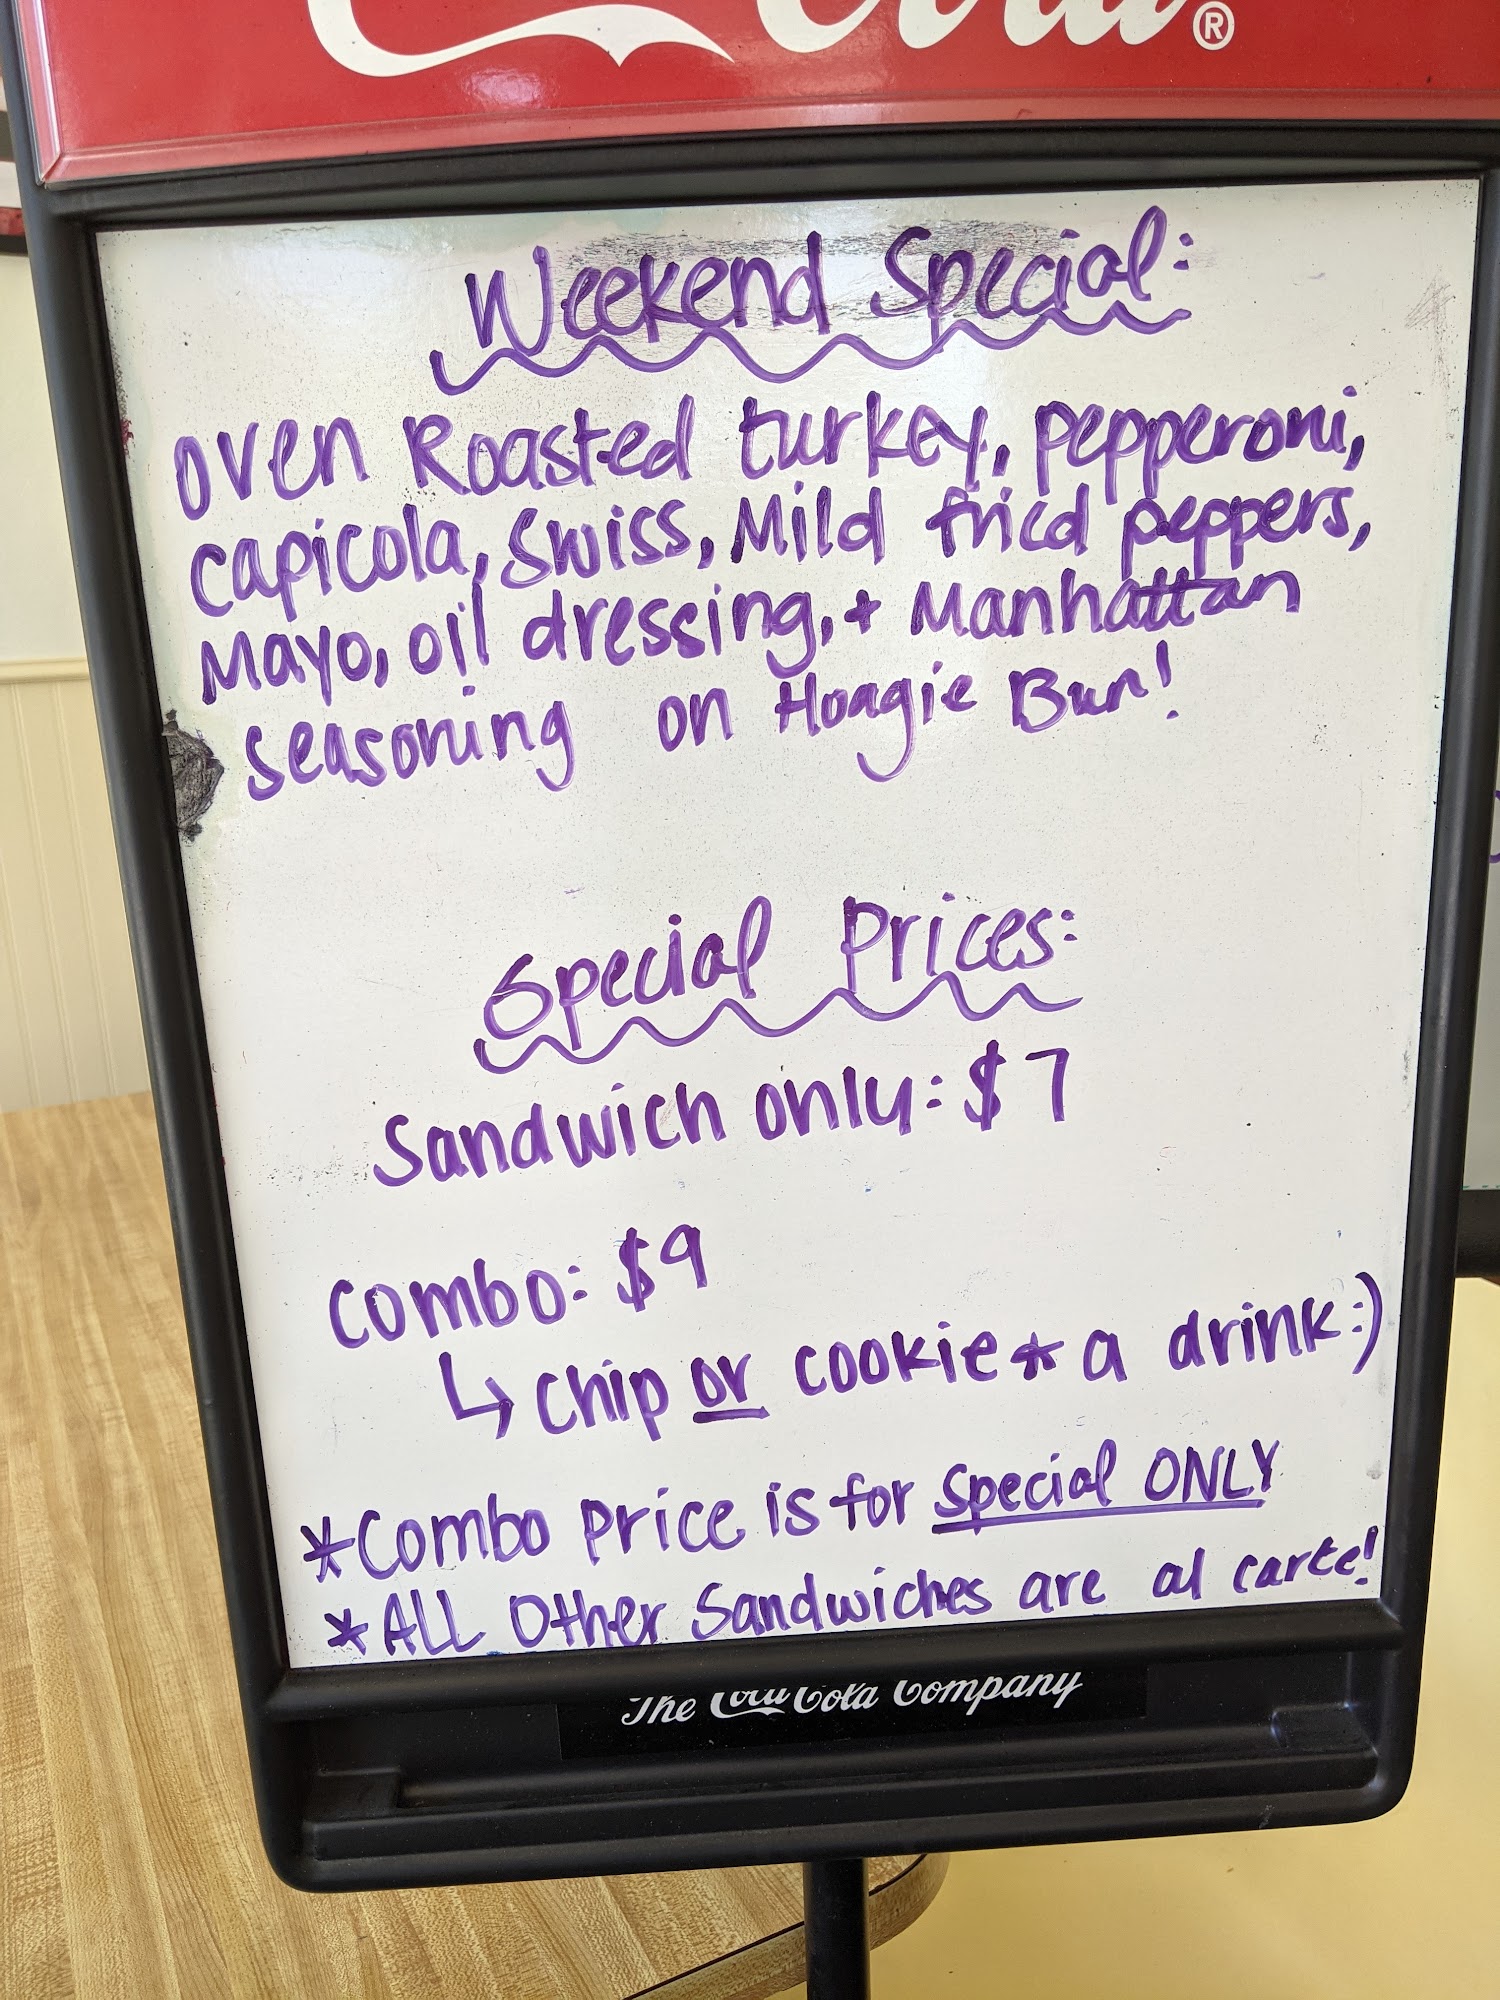 Cola®
Weekend Special:
oven Roasted turkey, pepperoni,
capicola, Swiss, Mild fried peppers,
Mayo, oil dressing, + Manhattan
seasoning on Hoagie Bun!
Special Prices:
Sandwich only: $7
Combo: $9
↳ chip or cookie + a drink:)
*Combo Price is for Special ONLY
*ALL Other Sandwiches are al carte!
The Coca-Cola Company